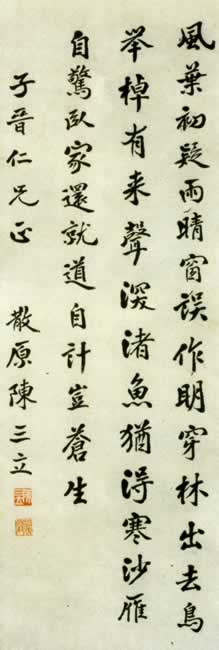 風葉初疑雨晴窗誤作明穿林出去鳥
举棹有来聲深渚魚猶得寒沙雁
自驚臥家還就道自計豈蒼生
子晉仁兄正 散原陳三立